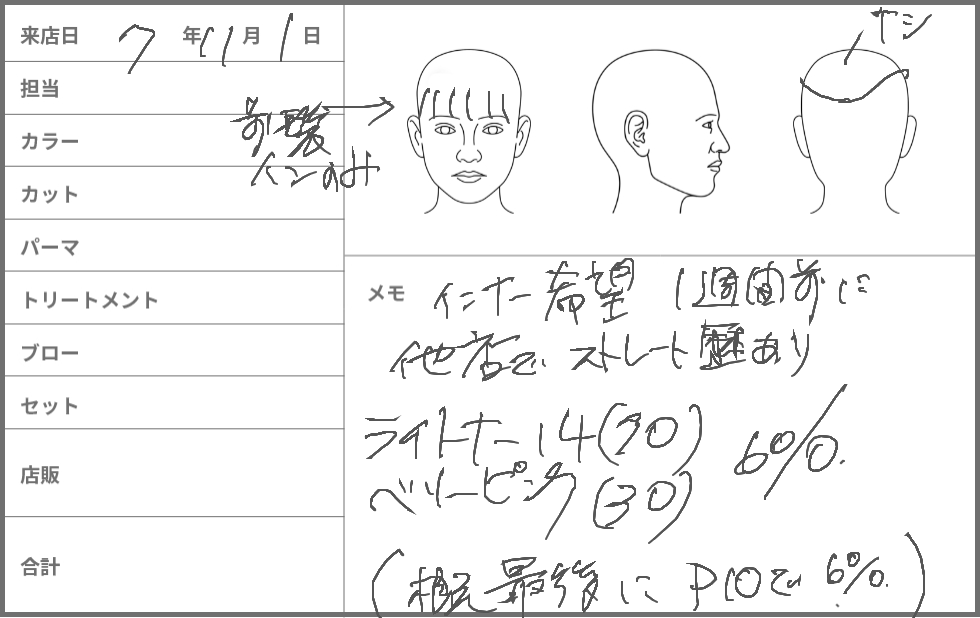 来店日 7 年 11 月 1 日
担当
カラー
カット
パーマ
トリートメント
ブロー
セット
店販
合計
前髪
インのみ
ナシ
メモ インナー希望 1週間前に
他店で ストレート歴あり
ライトナー14(70) 6%
ベリーピンク(30)
(根元最後に P10で 6%)